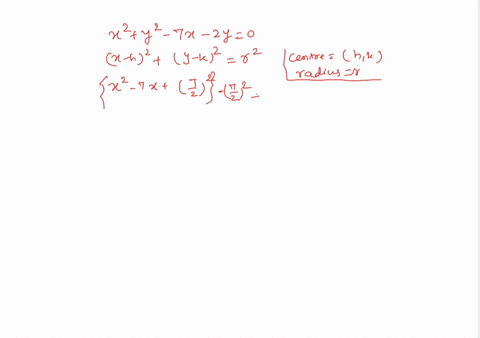 x² + y² - 7x - 2y = 0
(x-h)² + (y-k)² = r²
{centre = (h,k)
radius = r
{x² - 7x + (7/2)²} - (7/2)² =